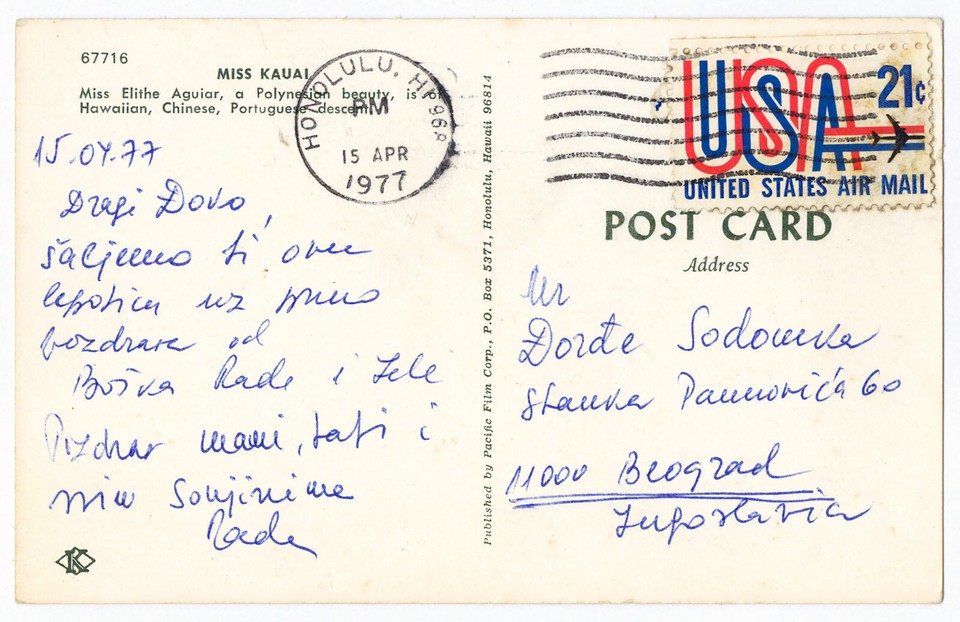 67716
MISS KAUAI
Miss Elithe Aguiar, a Polynesian beauty, is of
Hawaiian, Chinese, Portuguese descent.
HONOLULU, HI 968
PM
15 APR
1977
USA 21¢
UNITED STATES AIR MAIL
15.04.77
Dragi Đoko,
šaljemo ti ovu
lepoticu uz puno
pozdrava od
Boška Rade i Lele
Pozdrav mami, tati i
svim Sonjinima
Rada
Published by Pacific Film Corp., P.O. Box 5371, Honolulu, Hawaii 96814
POST CARD
Address
Mr
Đorđe
60
11000 Beograd
Jugoslavia
K